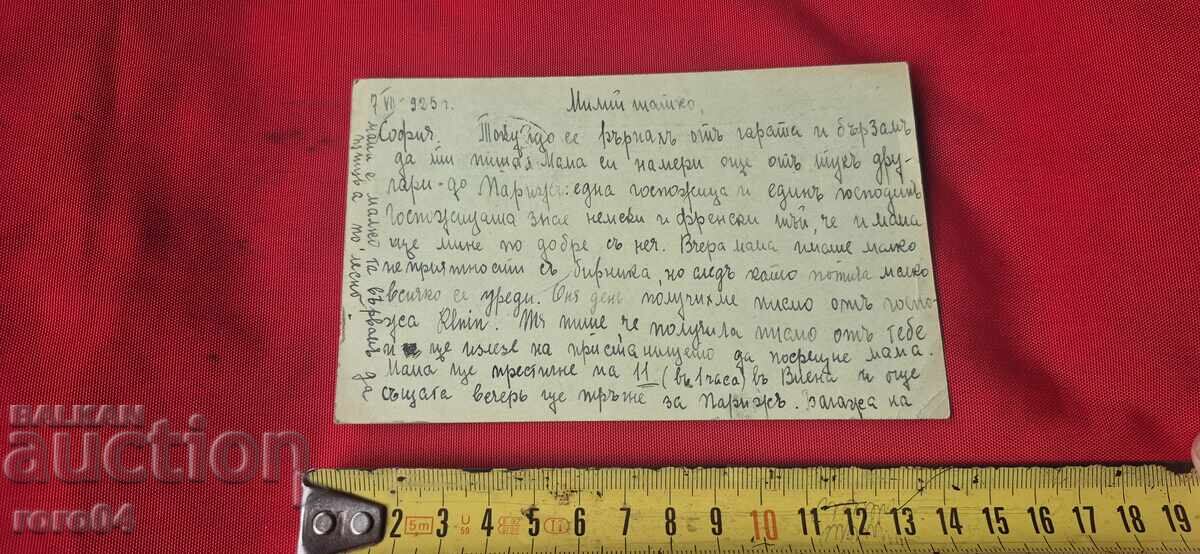 7 VII 925 г.
Милий татко,
София. Току що се върнах отъ гарата и бързамъ
да ти пиша. Мама си намери още отъ тукъ дру-
гари до Парижъ: една госпожица и единъ господинъ
Госпожицата знае немски и френски тъй, че и мама
ще мине по добре съ нея. Вчера мама имаше малко
неприятности съ бирника, но следъ като потича малко
всичко се уреди. Оня день получихме писмо отъ госпо-
жа Klnin. Тя пише че получила писмо отъ тебе
и ще излезе на пристанището да посрещне мама.
Мама ще пристигне на 11 (въ 1 часа) въ Виена и още
същата вечерь ще тръгне за Парижъ. Багажа на
мама е малко та вярвамъ да
пътува по лесно
БАЛКАН
auction
roro04
2 5m 3 U 50 4 5 6 7 8 9 10 11 12 13 14 15 16 17 18 19